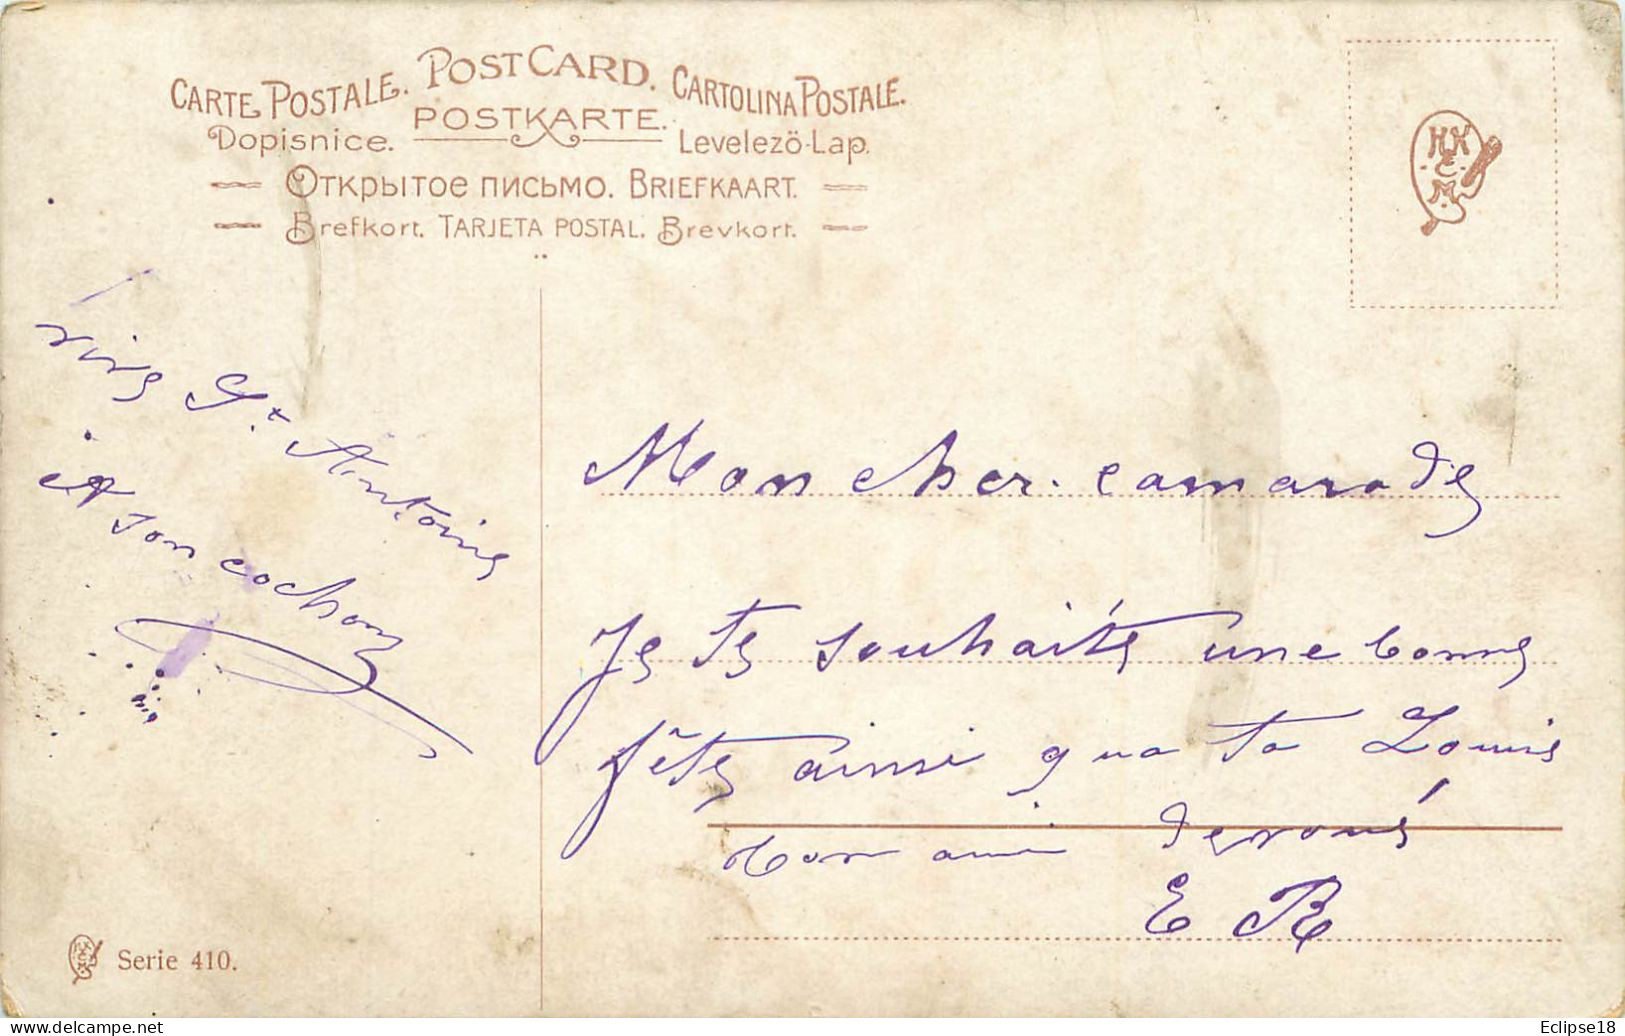 CARTE POSTALE. POST CARD. CARTOLINA POSTALE.
Dopisnice. POSTKARTE. Levelezö-Lap.
Открытое письмо. BRIEFKAART.
Brefkort. TARJETA POSTAL. Brevkort.
HK
E
M
vive St. Antoine
et son cochon
Mon cher camarade
Je te souhaite une bonne
fête ainsi qua ta Louise
ton ami devoué
E R
Serie 410.
delcampe.net
Eclipse18